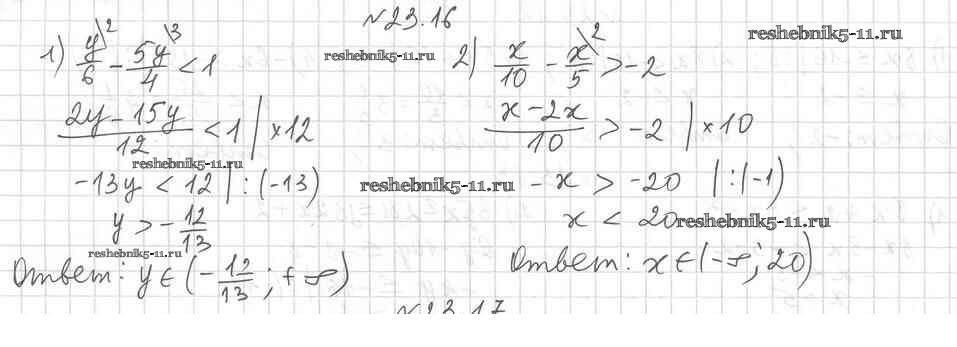 №23.16
reshebnik5-11.ru
1) y\2/6 - 5y\3/4 < 1
reshebnik5-11.ru
2) x/10 - x\2/5 > -2
(2y - 15y)/12 < 1 | ×12
(x - 2x)/10 > -2 | ×10
reshebnik5-11.ru
-13y < 12 | : (-13)
reshebnik5-11.ru
- x > -20 | : (-1)
y > - 12/13
x < 20
reshebnik5-11.ru
reshebnik5-11.ru
Ответ: y ∈ (- 12/13 ; +∞)
Ответ: x ∈ (-∞; 20)
№23.17